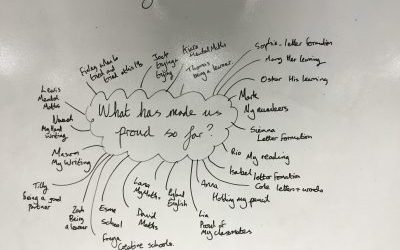 What has made us
proud so far?
Jack
trying + trying
Kiara
Mental Maths
Thomas
being a learner
Sophie - letter formation
Mary Her learning
Oskar His learning
Mark
My numbers
Sienna
Letter formation
Rio My reading
Isabel letter formation
Cole letters + words
Anna
Holding my pencil
Lia
Proud of
My classmates
Ryland
English
David
Maths
Lana
My Maths
Esme
School
Freya
Creative schools.
Zach
Being
a learner
Tilly
Being a good
partner
Mason
My Writing
My Hand
Writing
Lewis
Mental
Maths